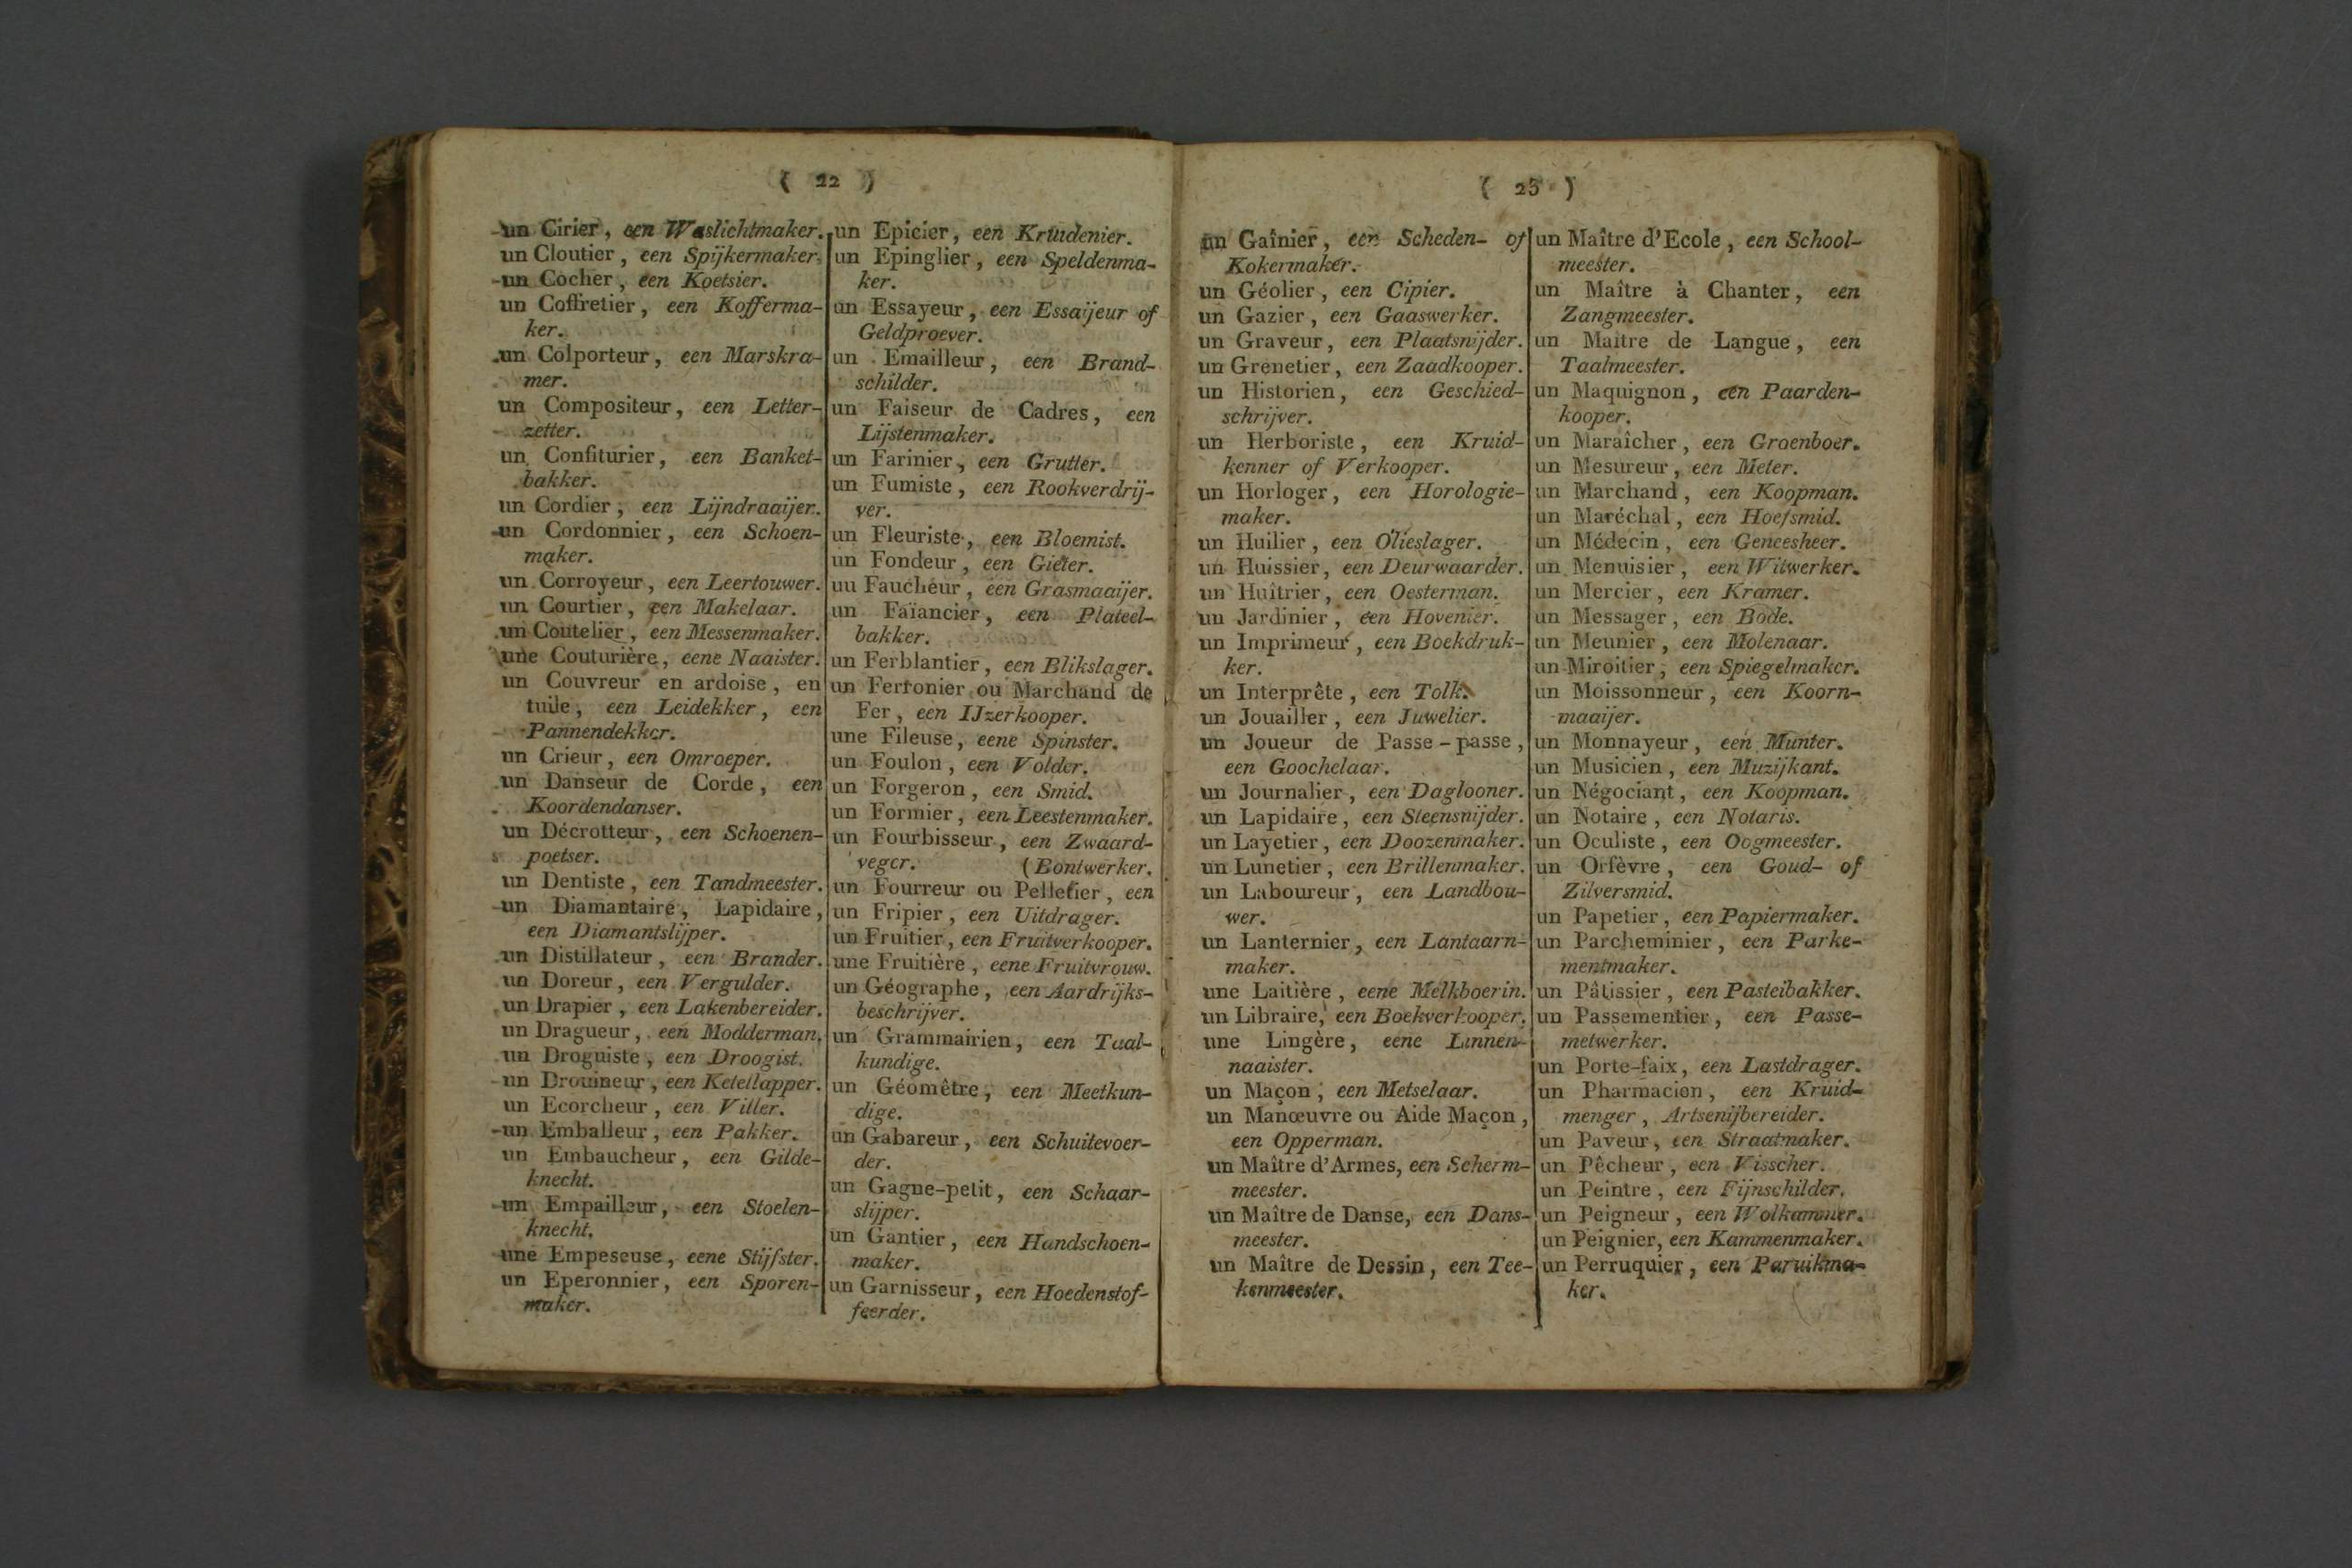 ( 22 )
un Cirier, een Waslichtmaker.
un Cloutier, een Spijkermaker.
un Cocher, een Koetsier.
un Coffretier, een Kofferma-
ker.
un Colporteur, een Marskra-
mer.
un Compositeur, een Letter-
zetter.
un Confiturier, een Banket-
bakker.
un Cordier, een Lijndraaijer.
un Cordonnier, een Schoen-
maker.
un Corroyeur, een Leertouwer.
un Courtier, een Makelaar.
un Coutelier, een Messenmaker.
une Couturière, eene Naaister.
un Couvreur en ardoise, en
tuile, een Leidekker, een
Pannendekker.
un Crieur, een Omroeper.
un Danseur de Corde, een
Koordendanser.
un Décrotteur, een Schoenen-
poetser.
un Dentiste, een Tandmeester.
un Diamantaire, Lapidaire,
een Diamantslijper.
un Distillateur, een Brander.
un Doreur, een Vergulder.
un Drapier, een Lakenbereider.
un Dragueur, een Modderman.
un Droguiste, een Droogist.
un Drouineur, een Ketellapper.
un Ecorcheur, een Viller.
un Emballeur, een Pakker.
un Embaucheur, een Gilde-
knecht.
un Empailleur, een Stoelen-
knecht.
une Empeseuse, eene Stijfster.
un Eperonnier, een Sporen-
maker.
un Epicier, een Kruidenier.
un Epinglier, een Speldenma-
ker.
un Essayeur, een Essaijeur of
Geldproever.
un Emailleur, een Brand-
schilder.
un Faiseur de Cadres, een
Lijstenmaker.
un Farinier, een Grutter.
un Fumiste, een Rookverdrij-
ver.
un Fleuriste, een Bloemist.
un Fondeur, een Gieter.
uu Faucheur, een Grasmaaijer.
un Faïancier, een Plateel-
bakker.
un Ferblantier, een Blikslager.
un Ferronier ou Marchand de
Fer, een IJzerkooper.
une Fileuse, eene Spinster.
un Foulon, een Volder.
un Forgeron, een Smid.
un Formier, een Leestenmaker.
un Fourbisseur, een Zwaard-
veger. (Bontwerker.
un Fourreur ou Pelletier, een
un Fripier, een Uitdrager.
un Fruitier, een Fruitverkooper.
une Fruitière, eene Fruitvrouw.
un Géographe, een Aardrijks-
beschrijver.
un Grammairien, een Taal-
kundige.
un Géomêtre, een Meetkun-
dige.
un Gabareur, een Schuitevoer-
der.
un Gagne-petit, een Schaar-
slijper.
un Gantier, een Handschoen-
maker.
un Garnisseur, een Hoedenstof-
feerder.
( 23 )
un Gaînier, een Scheden- of
Kokermaker.
un Géolier, een Cipier.
un Gazier, een Gaaswerker.
un Graveur, een Plaatsnijder.
un Grenetier, een Zaadkooper.
un Historien, een Geschied-
schrijver.
un Herboriste, een Kruid-
kenner of Verkooper.
un Horloger, een Horologie-
maker.
un Huilier, een Olieslager.
un Huissier, een Deurwaarder.
un Huîtrier, een Oesterman.
un Jardinier, een Hovenier.
un Imprimeur, een Boekdruk-
ker.
un Interprête, een Tolk.
un Jouailler, een Juwelier.
un Joueur de Passe-passe,
een Goochelaar.
un Journalier, een Daglooner.
un Lapidaire, een Steensnijder.
un Layetier, een Doozenmaker.
un Lunetier, een Brillenmaker.
un Laboureur, een Landbou-
wer.
un Lanternier, een Lantaarn-
maker.
une Laitière, eene Melkboerin.
un Libraire, een Boekverkooper.
une Lingère, eene Linnen-
naaister.
un Maçon, een Metselaar.
un Manœuvre ou Aide Maçon,
een Opperman.
un Maître d'Armes, een Scherm-
meester.
un Maître de Danse, een Dans-
meester.
un Maître de Dessin, een Tee-
kenmeester.
un Maître d'Ecole, een School-
meester.
un Maître à Chanter, een
Zangmeester.
un Maitre de Langue, een
Taalmeester.
un Maquignon, een Paarden-
kooper.
un Maraîcher, een Groenboer.
un Mesureur, een Meter.
un Marchand, een Koopman.
un Maréchal, een Hoefsmid.
un Médecin, een Geneesheer.
un Menuisier, een Witwerker.
un Mercier, een Kramer.
un Messager, een Bode.
un Meunier, een Molenaar.
un Miroitier, een Spiegelmaker.
un Moissonneur, een Koorn-
maaijer.
un Monnayeur, een Munter.
un Musicien, een Muzijkant.
un Négociant, een Koopman.
un Notaire, een Notaris.
un Oculiste, een Oogmeester.
un Orfèvre, een Goud- of
Zilversmid.
un Papetier, een Papiermaker.
un Parcheminier, een Parke-
mentmaker.
un Pâtissier, een Pasteibakker.
un Passementier, een Passe-
metwerker.
un Porte-faix, een Lastdrager.
un Pharmacien, een Kruid-
menger, Artsenijbereider.
un Paveur, een Straatmaker.
un Pêcheur, een Visscher.
un Peintre, een Fijnschilder.
un Peigneur, een Wolkammer.
un Peignier, een Kammenmaker.
un Perruquier, een Paruikma-
ker.